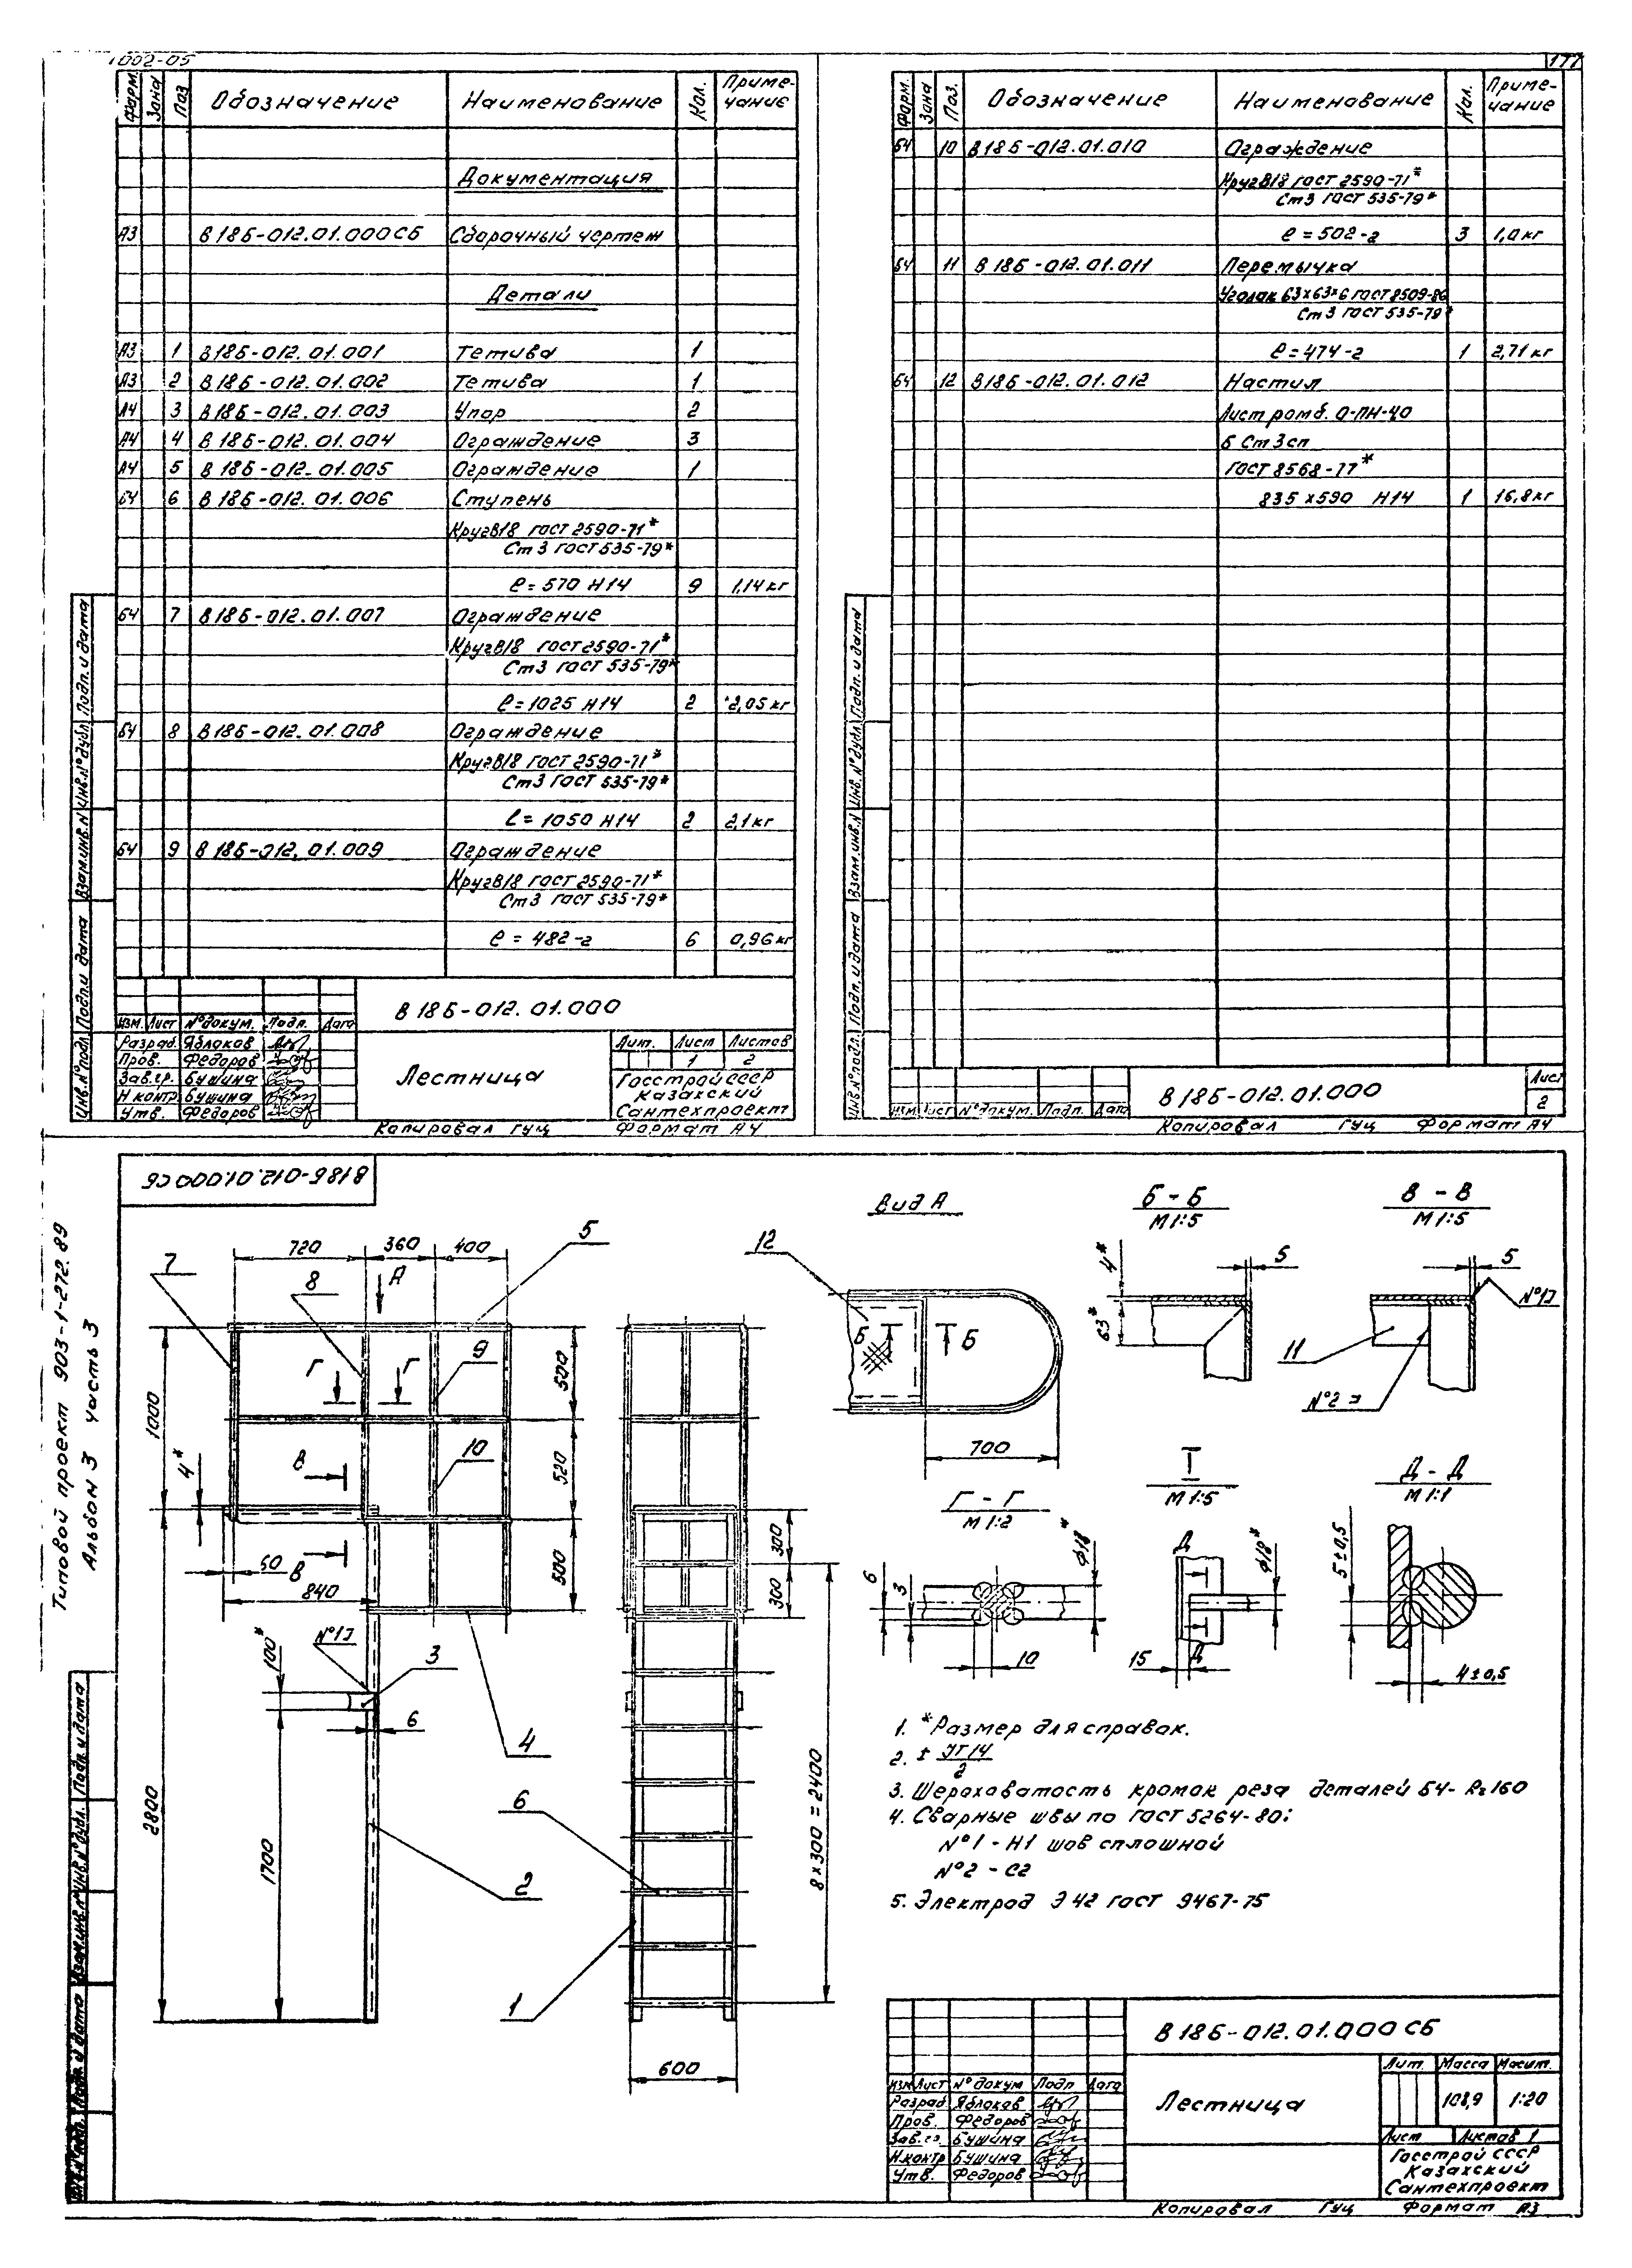 1002-05
177
Форм.
Зона
Поз
Обозначение
Наименование
Кол.
Приме-
чание
Документация
А3 В 18Б-012.01.000СБ Сборочный чертеж
Детали
А3 1 В 18Б-012.01.001 Тетива 1
А3 2 В 18Б-012.01.002 Тетива 1
А4 3 В 18Б-012.01.003 Упор 2
А4 4 В 18Б-012.01.004 Ограждение 3
А4 5 В 18Б-012.01.005 Ограждение 1
БЧ 6 В 18Б-012.01.006 Ступень
КругВ18 ГОСТ 2590-71*
Ст 3 ГОСТ 535-79*
ℓ=570 Н14 9 1,14кг
БЧ 7 В 18Б-012.01.007 Ограждение
КругВ18 ГОСТ 2590-71*
Ст3 ГОСТ 535-79*
ℓ=1025 Н14 2 2,05кг
БЧ 8 В 18Б-012.01.008 Ограждение
КругВ18 ГОСТ 2590-71*
Ст3 ГОСТ 535-79*
ℓ=1050 Н14 2 2,1кг
БЧ 9 В 18Б-012.01.009 Ограждение
КругВ18 ГОСТ 2590-71*
Ст3 ГОСТ 535-79*
ℓ = 482-2 6 0,96кг
В 18Б-012.01.000
Изм. Лист №докум. Подп. Дата
Разраб. Яблоков
Пров. Федоров
Зав.гр. Бушина
Н контр Бушина
Утв. Федоров
Лестница
Лит. Лист Листов
1 2
Госстрой СССР
Казахский
Сантехпроект
Копировал ГУЦ Формат А4
Инв.№подл. Подп. и дата Взам.инв.№ Инв.№дубл. Подп. и дата
Форм.
Зона
Поз.
Обозначение
Наименование
Кол.
Приме-
чание
БЧ 10 В 18Б-012.01.010 Ограждение
КругВ18 ГОСТ 2590-71*
Ст3 ГОСТ 535-79*
ℓ=502-2 3 1,0кг
БЧ 11 В 18Б-012.01.011 Перемычка
Уголок 63х63х6 ГОСТ 8509-86
Ст 3 ГОСТ 535-79*
ℓ=474-2 1 2,71 кг
БЧ 12 В 18Б-012.01.012 Настил
Лист ромб. О-ПН-4,0
Б Ст 3сп
ГОСТ 8568-77*
835 х590 Н14 1 16,8кг
Изм Лист №докум. Подп. Дата
В 18Б-012.01.000
Лист
2
Копировал ГУЦ Формат А4
Инв.№подл. Подп. и дата Взам.инв.№ Инв.№дубл. Подп. и дата
Типовой проект 903-1-272.89
Альбом 3 часть 3
В18Б-012.01.000СБ
720
360
400
5
7
8
А
9
Г
Г
500
1000
10
520
В
4*
В
60
840
500
№1
100*
3
6
4
2800
1700
6
2
1
300
300
8х300=2400
600
Вид А
12
Б
Б
700
Б - Б
М 1:5
4*
63*
5
В - В
М 1:5
5
№1
11
№2
Г - Г
М 1:2
6
3
10
ϕ18*
I
М 1:5
Д
Д
15
ϕ18*
Д - Д
М 1:1
5±0,5
4±0,5
1. *Размер для справок.
2. ± IT14/2
3. Шероховатость кромок реза деталей БЧ- Rz160
4. Сварные швы по ГОСТ 5264-80:
№1 - Н1 шов сплошной
№2 - С2
5. Электрод Э 42 ГОСТ 9467-75
В 18Б-012.01.000 СБ
Изм Лист № докум Подп Дата
Разраб Яблоков
Пров. Федоров
Зав.гр. Бушина
Н.контр Бушина
Утв. Федоров
Лестница
Лит. Масса Масшт.
108,9 1:20
Лист Листов 1
Госстрой СССР
Казахский
Сантехпроект
Копировал ГУЦ Формат А3
Подп. и дата